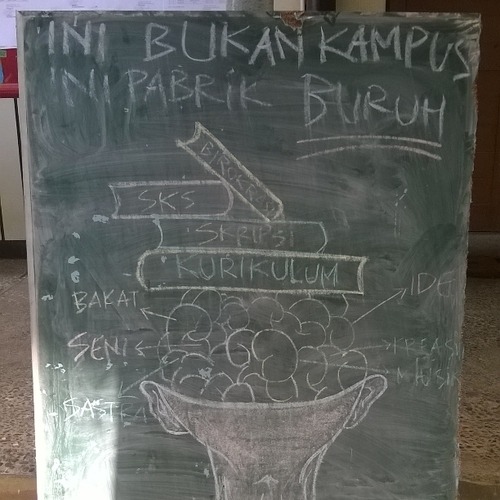 INI BUKAN KAMPUS
INI PABRIK BURUH
BIROKRASI
SKS
SKRIPSI
KURIKULUM
BAKAT
IDE
SENI
KREASI
MUSIK
SASTRA